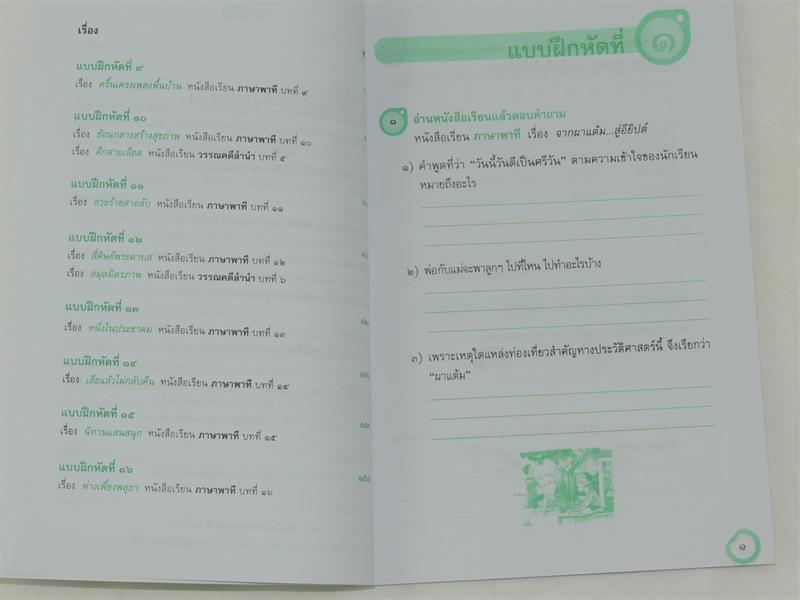 เรื่อง
แบบฝึกหัดที่ ๙
เรื่อง ครื้นเครงเพลงพื้นบ้าน หนังสือเรียน ภาษาพาที บทที่ ๙
แบบฝึกหัดที่ ๑๐
เรื่อง ช้อนกลางสร้างสุขภาพ หนังสือเรียน ภาษาพาที บทที่ ๑๐
เรื่อง ศึกสายเลือด หนังสือเรียน วรรณคดีลำนำ บทที่ ๕
แบบฝึกหัดที่ ๑๑
เรื่อง สวยร้ายสายลับ หนังสือเรียน ภาษาพาที บทที่ ๑๑
แบบฝึกหัดที่ ๑๒
เรื่อง สี่ศิษย์พระดาบส หนังสือเรียน ภาษาพาที บทที่ ๑๒
เรื่อง สมุดมิตรภาพ หนังสือเรียน วรรณคดีลำนำ บทที่ ๖
แบบฝึกหัดที่ ๑๓
เรื่อง หนึ่งในประชาคม หนังสือเรียน ภาษาพาที บทที่ ๑๓
แบบฝึกหัดที่ ๑๔
เรื่อง เสียแล้วไม่กลับคืน หนังสือเรียน ภาษาพาที บทที่ ๑๔
แบบฝึกหัดที่ ๑๕
เรื่อง นิทานแสนสนุก หนังสือเรียน ภาษาพาที บทที่ ๑๕
แบบฝึกหัดที่ ๑๖
เรื่อง พ่างเพี้ยงพสุธา หนังสือเรียน ภาษาพาที บทที่ ๑๖
แบบฝึกหัดที่ ๑
๑ อ่านหนังสือเรียนแล้วตอบคำถาม
หนังสือเรียน ภาษาพาที เรื่อง จากผาแต้ม...สู่อียิปต์
๑) คำพูดที่ว่า “วันนี้วันดีเป็นศรีวัน” ตามความเข้าใจของนักเรียน
หมายถึงอะไร
๒) พ่อกับแม่จะพาลูกๆ ไปที่ไหน ไปทำอะไรบ้าง
๓) เพราะเหตุใดแหล่งท่องเที่ยวสำคัญทางประวัติศาสตร์นี้ จึงเรียกว่า
“ผาแต้ม”
๑